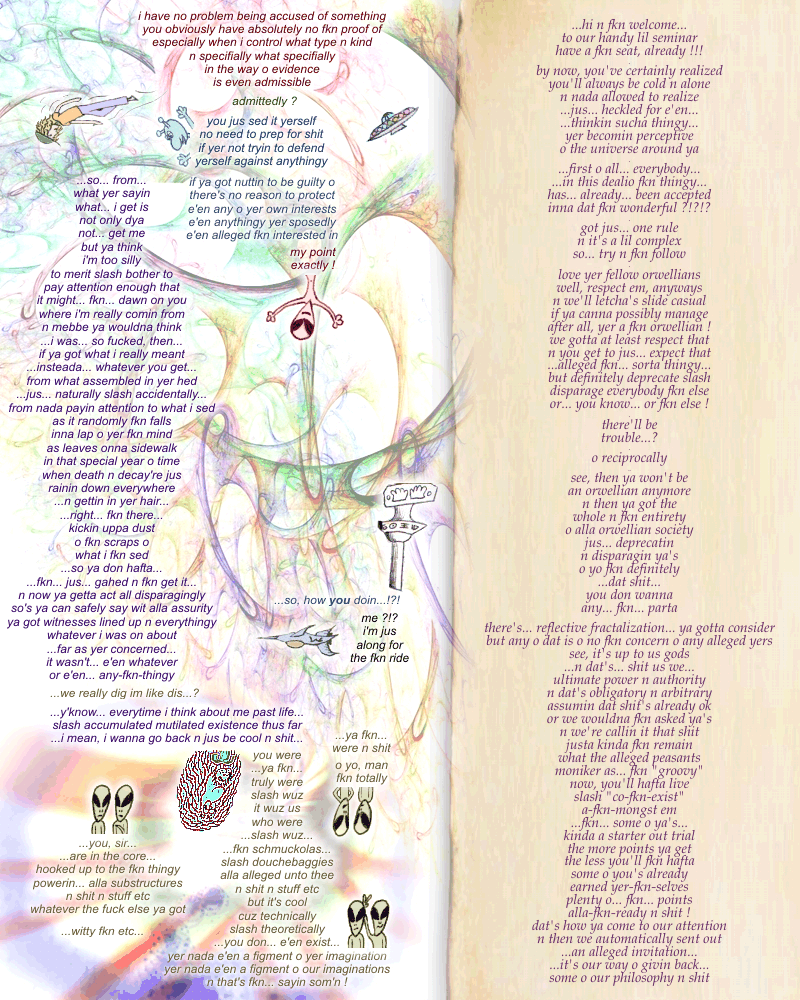 i have no problem being accused of something
you obviously have absolutely no fkn proof of
especially when i control what type n kind
n specifially what specifially
in the way o evidence
is even admissible
admittedly ?
you jus sed it yerself
no need to prep for shit
if yer not tryin to defend
yerself against anythingy
if ya got nuttin to be guilty o
there's no reason to protect
e'en any o yer own interests
e'en anythingy yer sposedly
e'en alleged fkn interested in
my point
exactly !
...so... from...
what yer sayin
what... i get is
not only dya
not... get me
but ya think
i'm too silly
to merit slash bother to
pay attention enough that
it might... fkn... dawn on you
where i'm really comin from
n mebbe ya wouldna think
...i was... so fucked, then...
if ya got what i really meant
...insteada... whatever you get...
from what assembled in yer hed
...jus... naturally slash accidentally...
from nada payin attention to what i sed
as it randomly fkn falls
inna lap o yer fkn mind
as leaves onna sidewalk
in that special year o time
when death n decay're jus
rainin down everywhere
...n gettin in yer hair...
...right... fkn there...
kickin uppa dust
o fkn scraps o
what i fkn sed
...so ya don hafta...
...fkn... jus... gahed n fkn get it...
n now ya getta act all disparagingly
so's ya can safely say wit alla assurity
ya got witnesses lined up n everythingy
whatever i was on about
...far as yer concerned...
it wasn't... e'en whatever
or e'en... any-fkn-thingy
...so, how you doin...!?!
me ?!?
i'm jus
along for
the fkn ride
...we really dig im like dis...?
...y'know... everytime i think about me past life...
slash accumulated mutilated existence thus far
...i mean, i wanna go back n jus be cool n shit...
...ya fkn...
were n shit
o yo, man
fkn totally
you were
...ya fkn...
truly were
slash wuz
it wuz us
who were
...slash wuz...
...fkn schmuckolas...
slash douchebaggies
alla alleged unto thee
n shit n stuff etc
but it's cool
cuz technically
slash theoretically
...you don... e'en exist...
yer nada e'en a figment o yer imagination
yer nada e'en a figment o our imaginations
n that's fkn... sayin som'n !
...you, sir...
...are in the core...
hooked up to the fkn thingy
powerin... alla substructures
n shit n stuff etc
whatever the fuck else ya got
...witty fkn etc...
...hi n fkn welcome...
to our handy lil seminar
have a fkn seat, already !!!
by now, you've certainly realized
you'll always be cold n alone
n nada allowed to realize
...jus... heckled for e'en...
...thinkin sucha thingy...
yer becomin perceptive
o the universe around ya
...first o all... everybody...
...in this dealio fkn thingy...
has... already... been accepted
inna dat fkn wonderful ?!?!?
got jus... one rule
n it's a lil complex
so... try n fkn follow
love yer fellow orwellians
well, respect em, anyways
n we'll letcha's slide casual
if ya canna possibly manage
after all, yer a fkn orwellian !
we gotta at least respect that
n you get to jus... expect that
...alleged fkn... sorta thingy...
but definitely deprecate slash
disparage everybody fkn else
or... you know... or fkn else !
there'll be
trouble...?
o reciprocally
see, then ya won't be
an orwellian anymore
n then ya got the
whole n fkn entirety
o alla orwellian society
jus... deprecatin
n disparagin ya's
o yo fkn definitely
...dat shit...
you don wanna
any... fkn... parta
there's... reflective fractalization... ya gotta consider
but any o dat is o no fkn concern o any alleged yers
see, it's up to us gods
...n dat's... shit us we...
ultimate power n authority
n dat's obligatory n arbitrary
assumin dat shit's already ok
or we wouldna fkn asked ya's
n we're callin it that shit
justa kinda fkn remain
what the alleged peasants
moniker as... fkn "groovy"
now, you'll hafta live
slash "co-fkn-exist"
a-fkn-mongst em
...fkn... some o ya's...
kinda a starter out trial
the more points ya get
the less you'll fkn hafta
some o you's already
earned yer-fkn-selves
plenty o... fkn... points
alla-fkn-ready n shit !
dat's how ya come to our attention
n then we automatically sent out
...an alleged invitation...
...it's our way o givin back...
some o our philosophy n shit